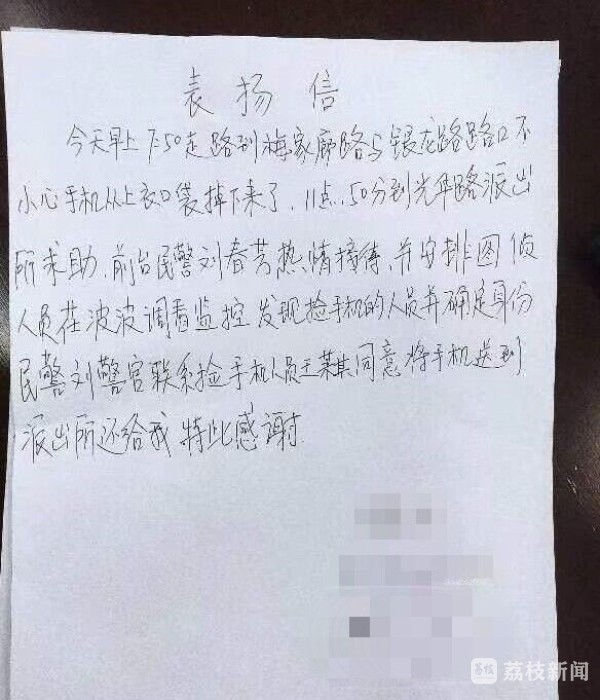 表扬信
今天早上7:50走路到梅家廊路与银龙路路口不
小心手机从上衣口袋掉下来了，11点..50分到光华路派出
所求助，前台民警刘春芳热情接待，并安排图侦
人员在波波调看监控 发现捡手机的人员并确定身份
民警刘警官联系捡手机人员王某某同意将手机送到
派出所还给我 特此感谢
荔枝新闻